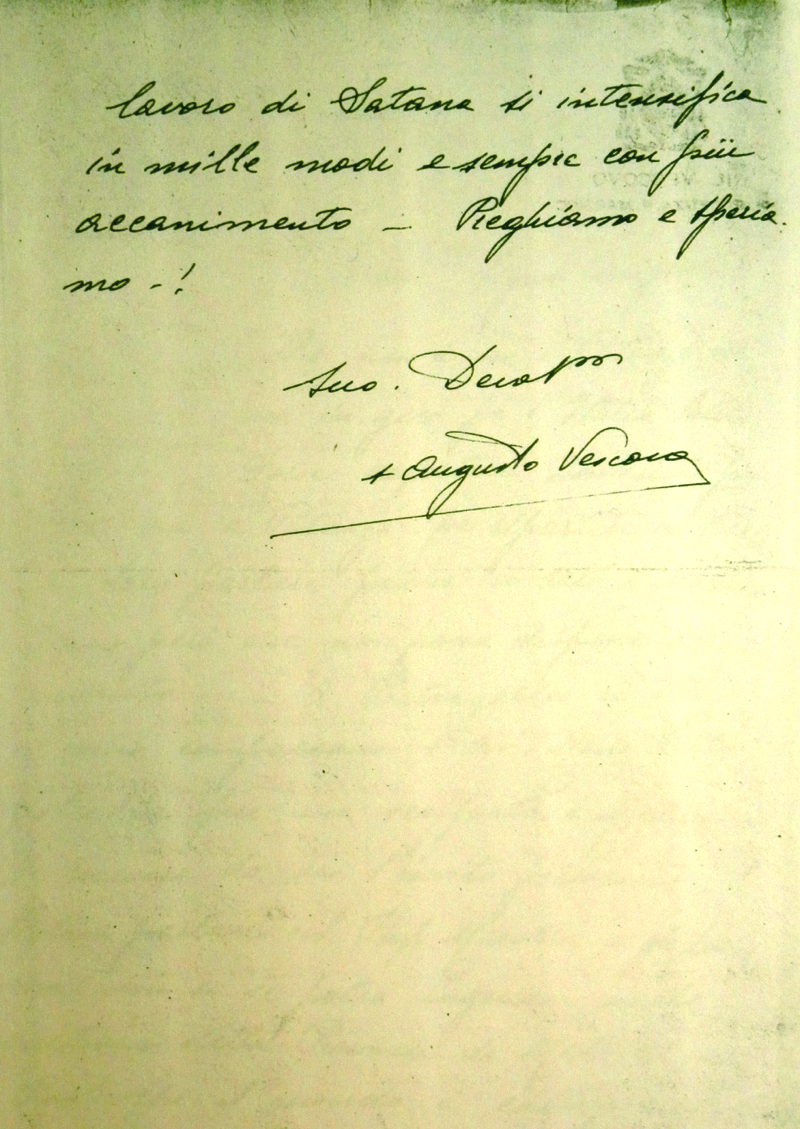 lavoro di Satana si intensifica
in mille modi e sempre con più
accanimento – Preghiamo e speria-
mo - !
Suo. Devot mo
+ Augusto Vescovo